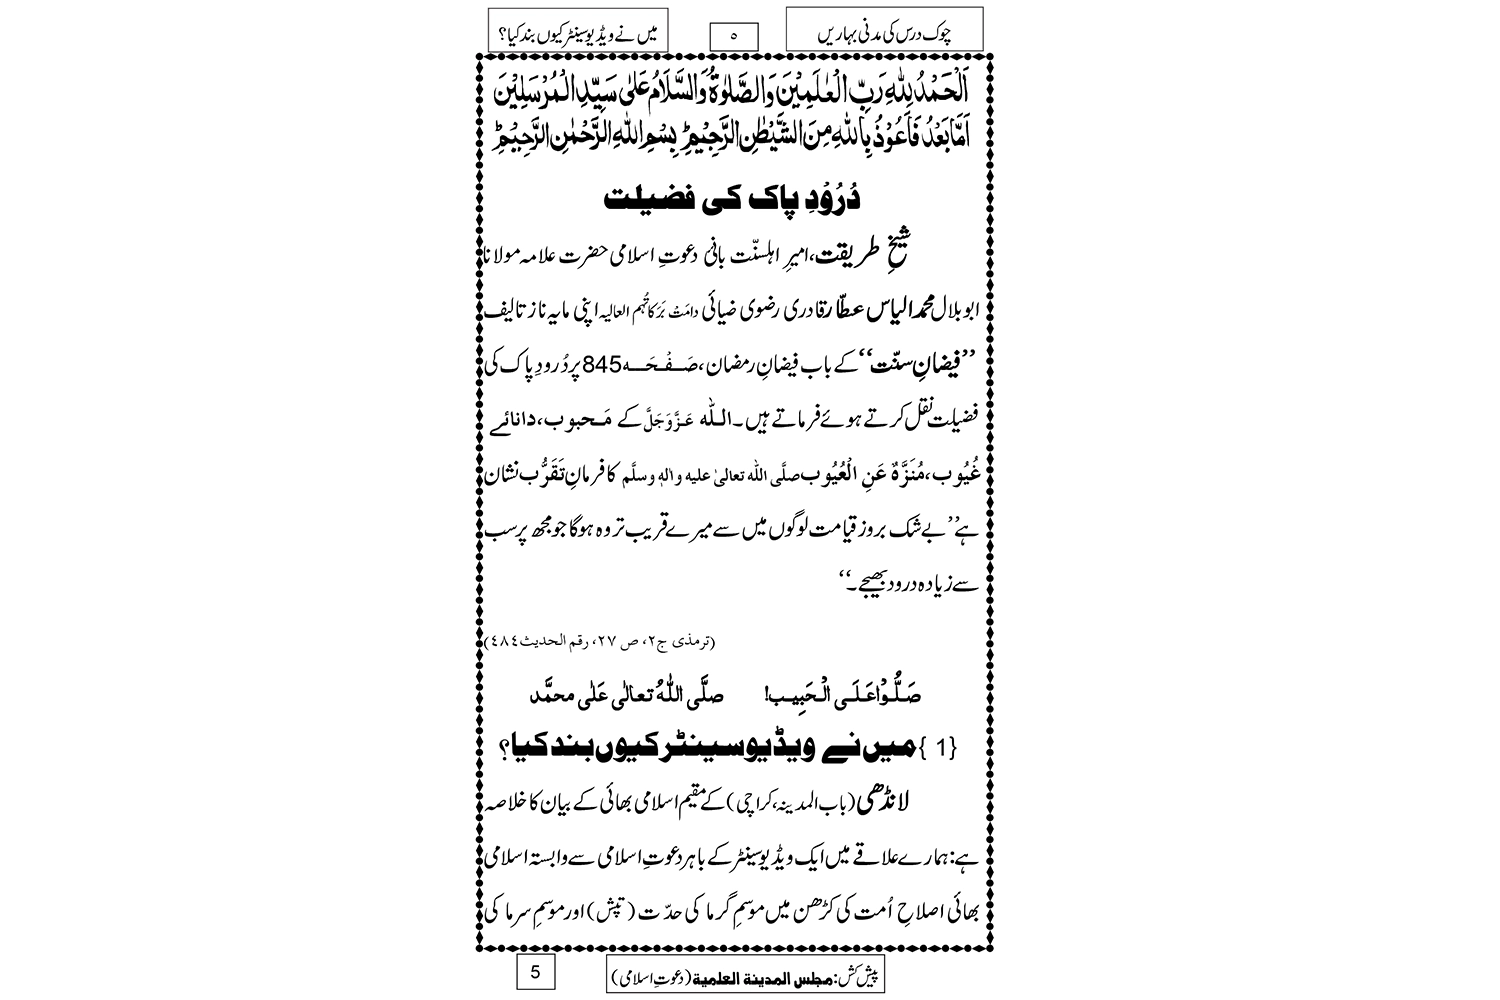 چوک درس کی مدنی بہاریں ٥ میں نے ویڈیو سینٹر کیوں بند کیا؟
اَلْحَمْدُ لِلّٰہِ رَبِّ الْعٰلَمِیْنَ وَالصَّلٰوۃُ وَالسَّلَامُ عَلٰی سَیِّدِ الْمُرْسَلِیْنَ
اَمَّا بَعْدُ فَاَعُوْذُ بِاللّٰہِ مِنَ الشَّیْطٰنِ الرَّجِیْمِؕ بِسْمِ اللّٰہِ الرَّحْمٰنِ الرَّحِیْمِؕ
دُرُوْدِ پاک کی فضیلت
شیخِ طریقت، امیرِ اہلسنّت بانیٔ دعوتِ اسلامی حضرت علامہ مولانا
ابو بلال محمد الیاس عطّار قادری رضوی ضیائی دامَتْ بَرَکاتُہم العالیہ اپنی مایہ ناز تالیف
’’فیضانِ سنّت‘‘ کے باب فیضانِ رمضان، صَفْحَہ 845 پر دُرودِ پاک کی
فضیلت نقل کرتے ہوئے فرماتے ہیں۔ اللہ عَزَّوَجَلَّ کے مَحبوب، دانائے
غُیُوب، مُنَزَّہٌ عَنِ الْعُیُوب صلَّی اللہ تعالیٰ علیہ واٰلہٖ وسلَّم کا فرمانِ تَقَرُّب نشان
ہے ’’بے شک بروز قیامت لوگوں میں سے میرے قریب تر وہ ہوگا جو مجھ پر سب
سے زیادہ درود بھیجے۔‘‘
(ترمذی ج۲، ص ۲۷، رقم الحدیث ٤٨٤)
صَلُّوْا عَلَی الْحَبِیب! صلَّی اللّٰہُ تعالٰی عَلٰی محمَّد
{1} میں نے ویڈیو سینٹر کیوں بند کیا؟
لانڈھی (باب المدینہ، کراچی) کے مقیم اسلامی بھائی کے بیان کا خلاصہ
ہے: ہمارے علاقے میں ایک ویڈیو سینٹر کے باہر دعوتِ اسلامی سے وابستہ اسلامی
بھائی اصلاحِ اُمت کی کڑھن میں موسمِ گرما کی حدّت (تپش) اور موسمِ سرما کی
پیش کش: مجلس المدینۃ العلمیۃ (دعوتِ اسلامی) 5